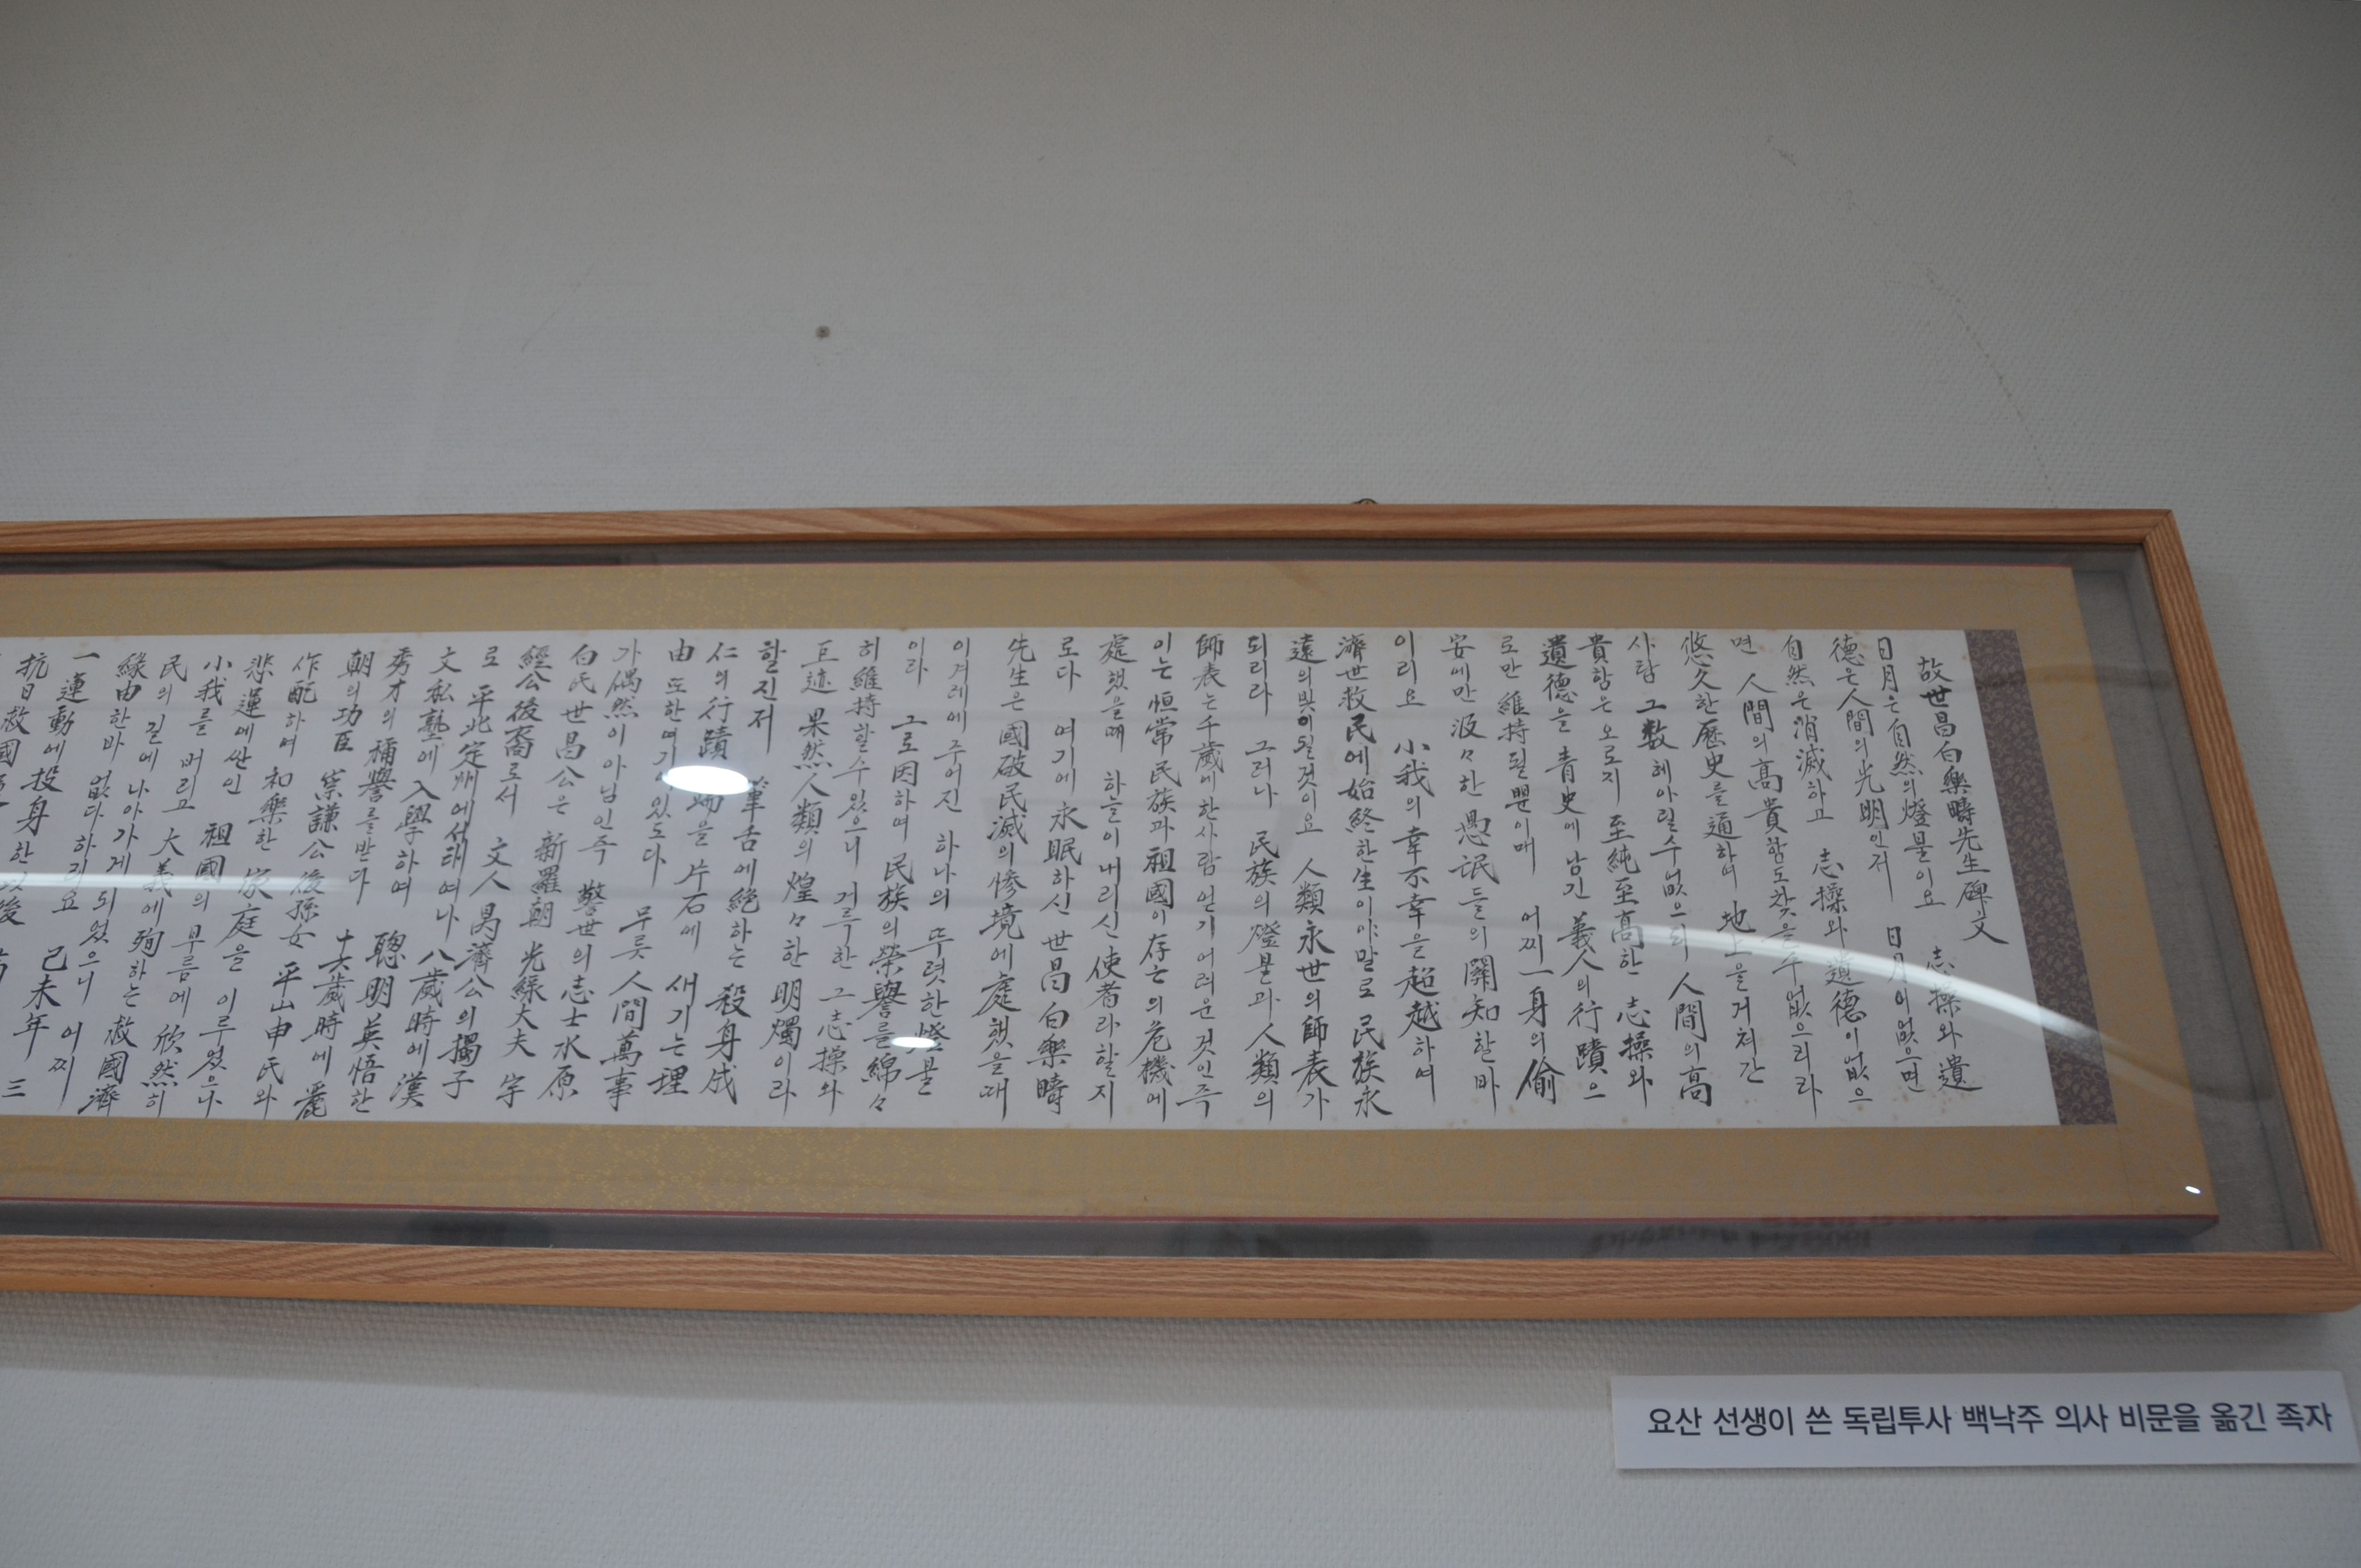 故世昌白樂疇先生碑文
日月은 自然의 燈불이요 志操와 遺
德은 人間의 光明인저 日月이없으면
自然은 消滅하고 志操와 道德이없으
면 人間의 高貴함도찾을수없으리라
悠久한 歷史를 通하여 地上을거쳐간
사람 그数헤아릴수없으되 人間의高
貴함은 오로지 至純至高한 志操와
遺德을 青史에 남긴 義人의行蹟으
로만 維持될뿐이매 어찌一身의偸
安에만 汲々한 愚氓들의關知할바
이리요 小我의幸不幸을超越하여
濟世救民에始終한生이야말로 民族永
遠의빛이될것이요 人類永世의師表가
되리라 그러나 民族의燈불과人類의
師表는千歲에한사람얻기어려운것인즉
이는恒常民族과祖國이存亡의危機에
處했을때 하늘이내리신使者라할지
로다 여기에永眠하신 世昌白樂疇
先生은國破民滅의慘境에處했을때
이겨레에주어진 하나의 뚜렷한燈불
이라 그로因하여 民族의榮譽를綿々
히維持할수있으니 거룩한 그志操와
巨迹 果然人類의煌々한明燭이라
할진저 筆舌에絶하는 殺身成
仁의行蹟 을 片石에 새기는理
由 또한여기 있도다 무릇 人間萬事
가偶然이아님인즉 警世의志士水原
白氏世昌公은 新羅朝 光綠大夫 宇
經公後裔로서 文人昌濟公의獨子
로 平北定州에서태여나 八歲時에漢
文私塾에 入學하여 聰明英悟한
秀才의 稱譽를받다 十六歲時에 麗
朝의功臣 崇謙公後孫女 平山申氏와
作配하여 和樂한 家庭을 이루었으나
悲運에싸인 祖國의 부름에 欣然히
小我를 버리고 大義에殉하는 救國濟
民의 길에 나아가게되었으니 어찌
緣由한바 없다하리요 己未年 三
一運動에投身한以後
抗日救國
요산 선생이 쓴 독립투사 백낙주 의사 비문을 옮긴 족자